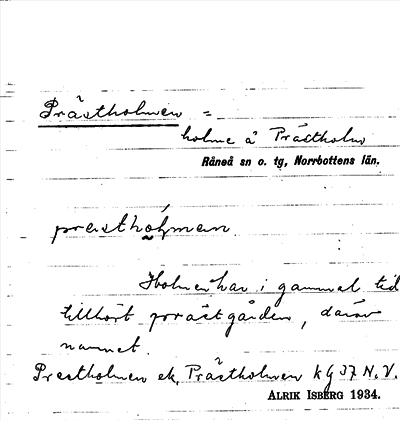 Prästholmen =
holme å Prästholm
Råneå sn o. tg, Norrbottens län.
præsthɷļmen.
Holmen har i gammel tid
tillhört prästgården, därav
namnet.
Prestholmen ek, Prästholmen kg 37 N.V.
ALRIK ISBERG 1934.